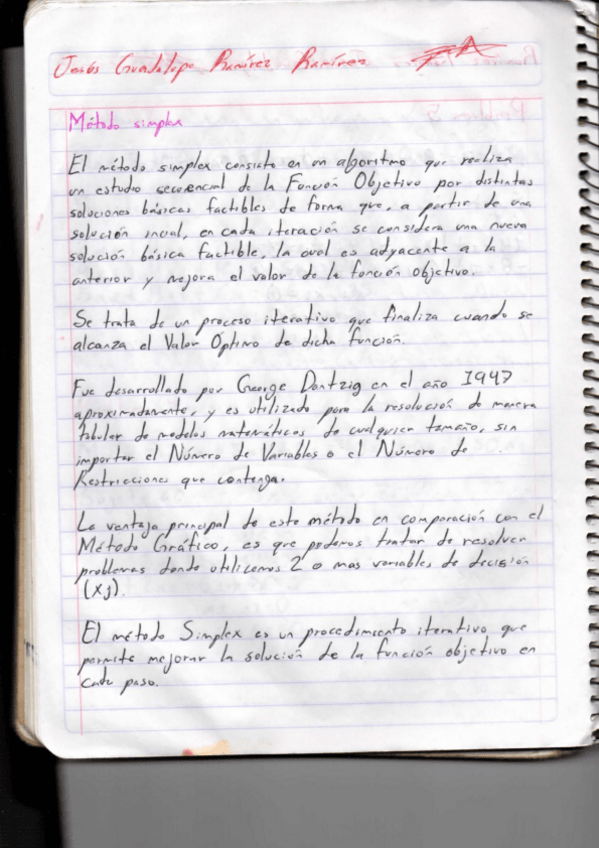 Jesús Guadalupe Ramírez Ramírez
Método simplex
El método simplex consiste en un algoritmo que realiza
un estudio secuencial de la Función Objetivo por distintas
soluciones básicas factibles de forma que, a partir de una
solución inicial, en cada iteración se considera una nueva
solución básica factible, la cual es adyacente a la
anterior y mejora el valor de la función objetivo.
Se trata de un proceso iterativo que finaliza cuando se
alcanza el Valor Óptimo de dicha función.
Fue desarrollado por George Dantzig en el año 1947
aproximadamente, y es utilizado para la resolución de manera
tabular de modelos matemáticos de cualquier tamaño, sin
importar el Número de Variables o el Número de
Restricciones que contenga.
La ventaja principal de este método en comparación con el
Método Gráfico, es que podemos tratar de resolver
problemas donde utilicemos 2 o mas variables de decisión
(Xj).
El método Simplex es un procedimiento iterativo que
permite mejorar la solución de la función objetivo en
cada paso.